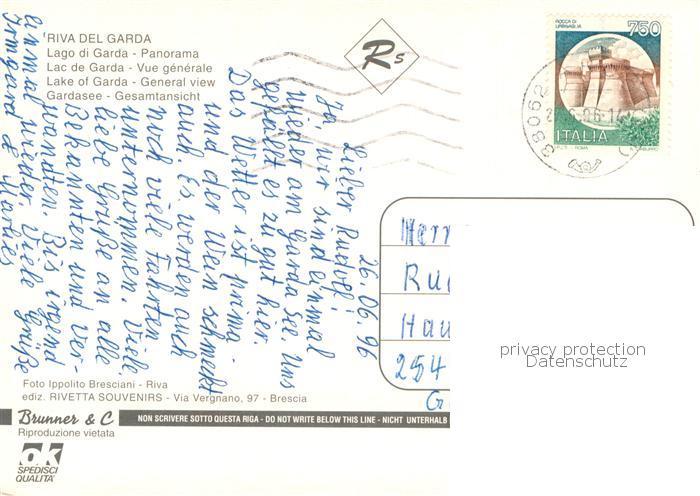 RIVA DEL GARDA
Lago di Garda - Panorama
Lac de Garda - Vue générale
Lake of Garda - General view
Gardasee - Gesamtansicht
Rs
ROCCA DI URBISAGLIA
750
ITALIA
38062
26.06.96
Lieber Rudolf!
Ja, wir sind einmal
wieder am Garda See. Uns
gefällt es zu gut hier.
Das Wetter ist prima
und der Wein schmeckt
auch. Es werden auch
noch viele Fahrten
unternommen. Viele
liebe Grüße an alle
Bekannten und Ver-
wandten. Bis irgend
einmal wieder. Viele Grüße
Irmgard &
Herr
Ru
Hau
254
G
privacy protection
Datenschutz
Foto Ippolito Bresciani - Riva
ediz. RIVETTA SOUVENIRS - Via Vergnano, 97 - Brescia
Brunner & C
NON SCRIVERE SOTTO QUESTA RIGA - DO NOT WRITE BELOW THIS LINE - NICHT UNTERHALB
Riproduzione vietata
ok
SPEDISCI
QUALITA'